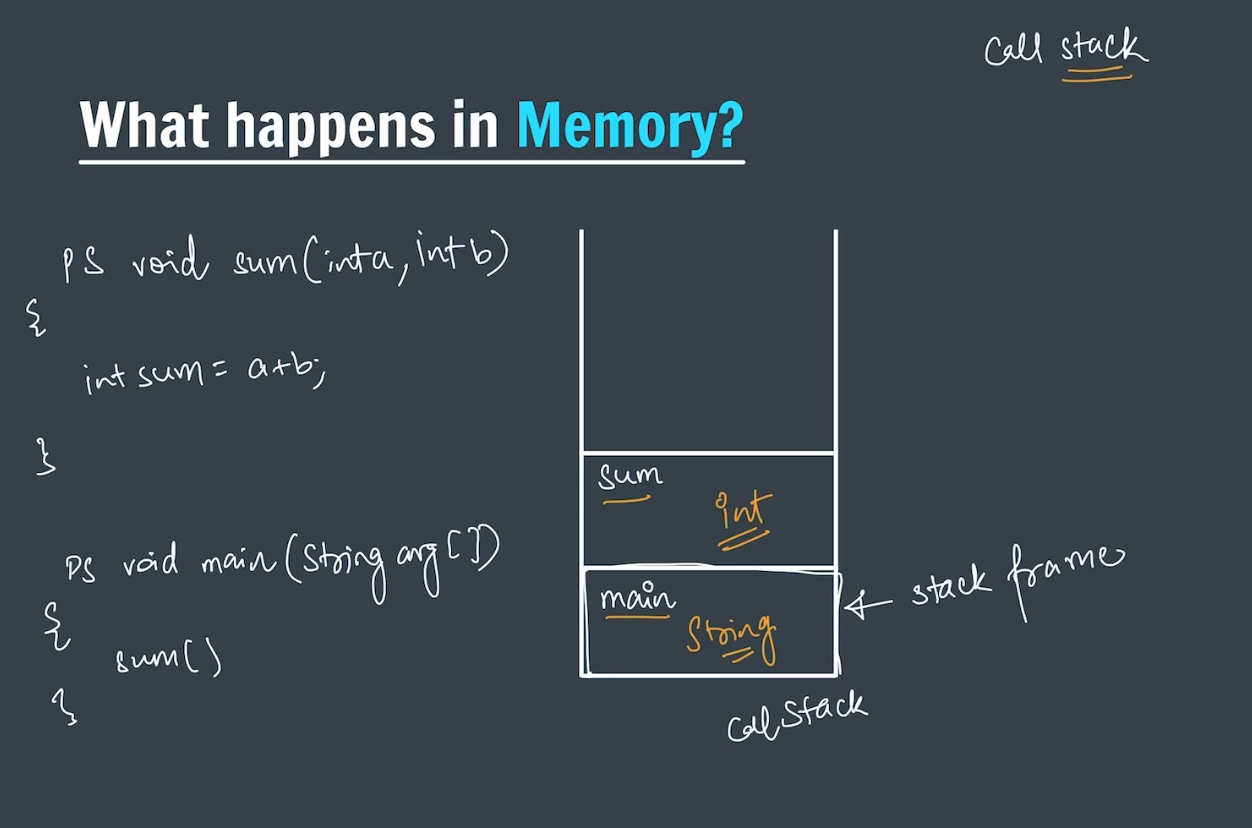 Call stack
What happens in Memory?
PS void sum(int a, int b)
{
int sum = a+b;
}
PS void main(String arg[])
{
sum()
}
sum
int
main
String
← stack frame
Call Stack